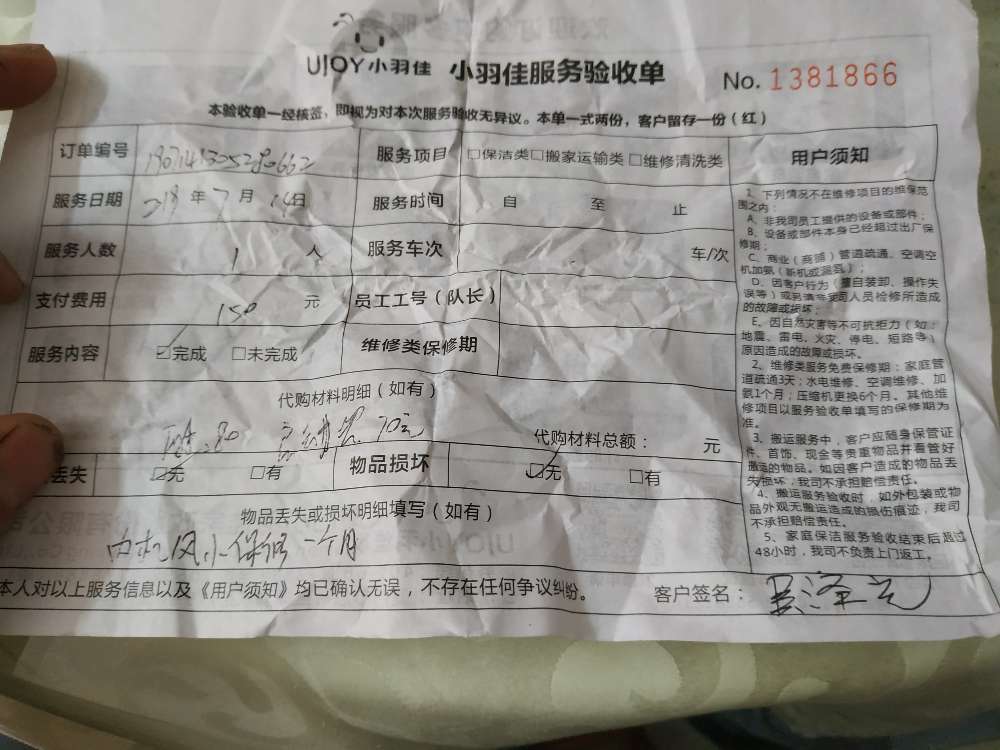 UJOY小羽佳 小羽佳服务验收单 No. 1381866
本验收单一经核签，即视为对本次服务验收无异议。本单一式两份，客户留存一份（红）
订单编号 服务项目 □保洁类□搬家运输类□维修清洗类
服务日期 年 7 月 14日 服务时间 自 至 止
服务人数 1 人 服务车次 车/次
支付费用 150 元 员工工号（队长）
服务内容 ☑完成 □未完成 维修类保修期
代购材料明细（如有）
80 70元 代购材料总额： 元
丢失 ☑无 □有 物品损坏 ☑无 □有
物品丢失或损坏明细填写（如有）
内机风小保修一个月
本人对以上服务信息以及《用户须知》均已确认无误，不存在任何争议纠纷。 客户签名：
用户须知
1、下列情况不在维修项目的维保范
围之内：
A、非我司员工提供的设备或部件；
B、设备或部件本身已经超过出厂保
修期；
C、商业（商铺）管道疏通、空调空
机加氨（新机或漏氨）；
D、因客户行为（擅自装卸、操作失
误等）或另请非我司人员检修所造成
的故障或损坏；
E、因自然灾害等不可抗拒力（如：
地震、雷电、火灾、停电、短路等）
原因造成的故障或损坏。
2、维修类服务免费保修期：家庭管
道疏通3天；水电维修、空调维修、加
氨1个月；压缩机更换6个月。其他维
修项目以服务验收单填写的保修期为
准。
3、搬运服务中，客户应随身保管证
件、首饰、现金等贵重物品并看管好
搬运的物品。如因客户造成的物品丢
失损坏，我司不承担赔偿责任。
4、搬运服务验收时，如外包装或物
品外观无搬运造成的损伤痕迹，我司
不承担赔偿责任。
5、家庭保洁服务验收结束后超过
48小时，我司不负责上门返工。